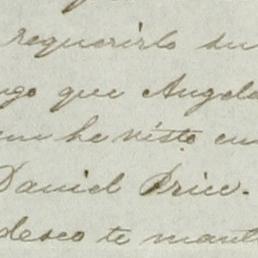 requerirlo su
ngo que Angel
he visto en
Daniel Price.
deseo te mant